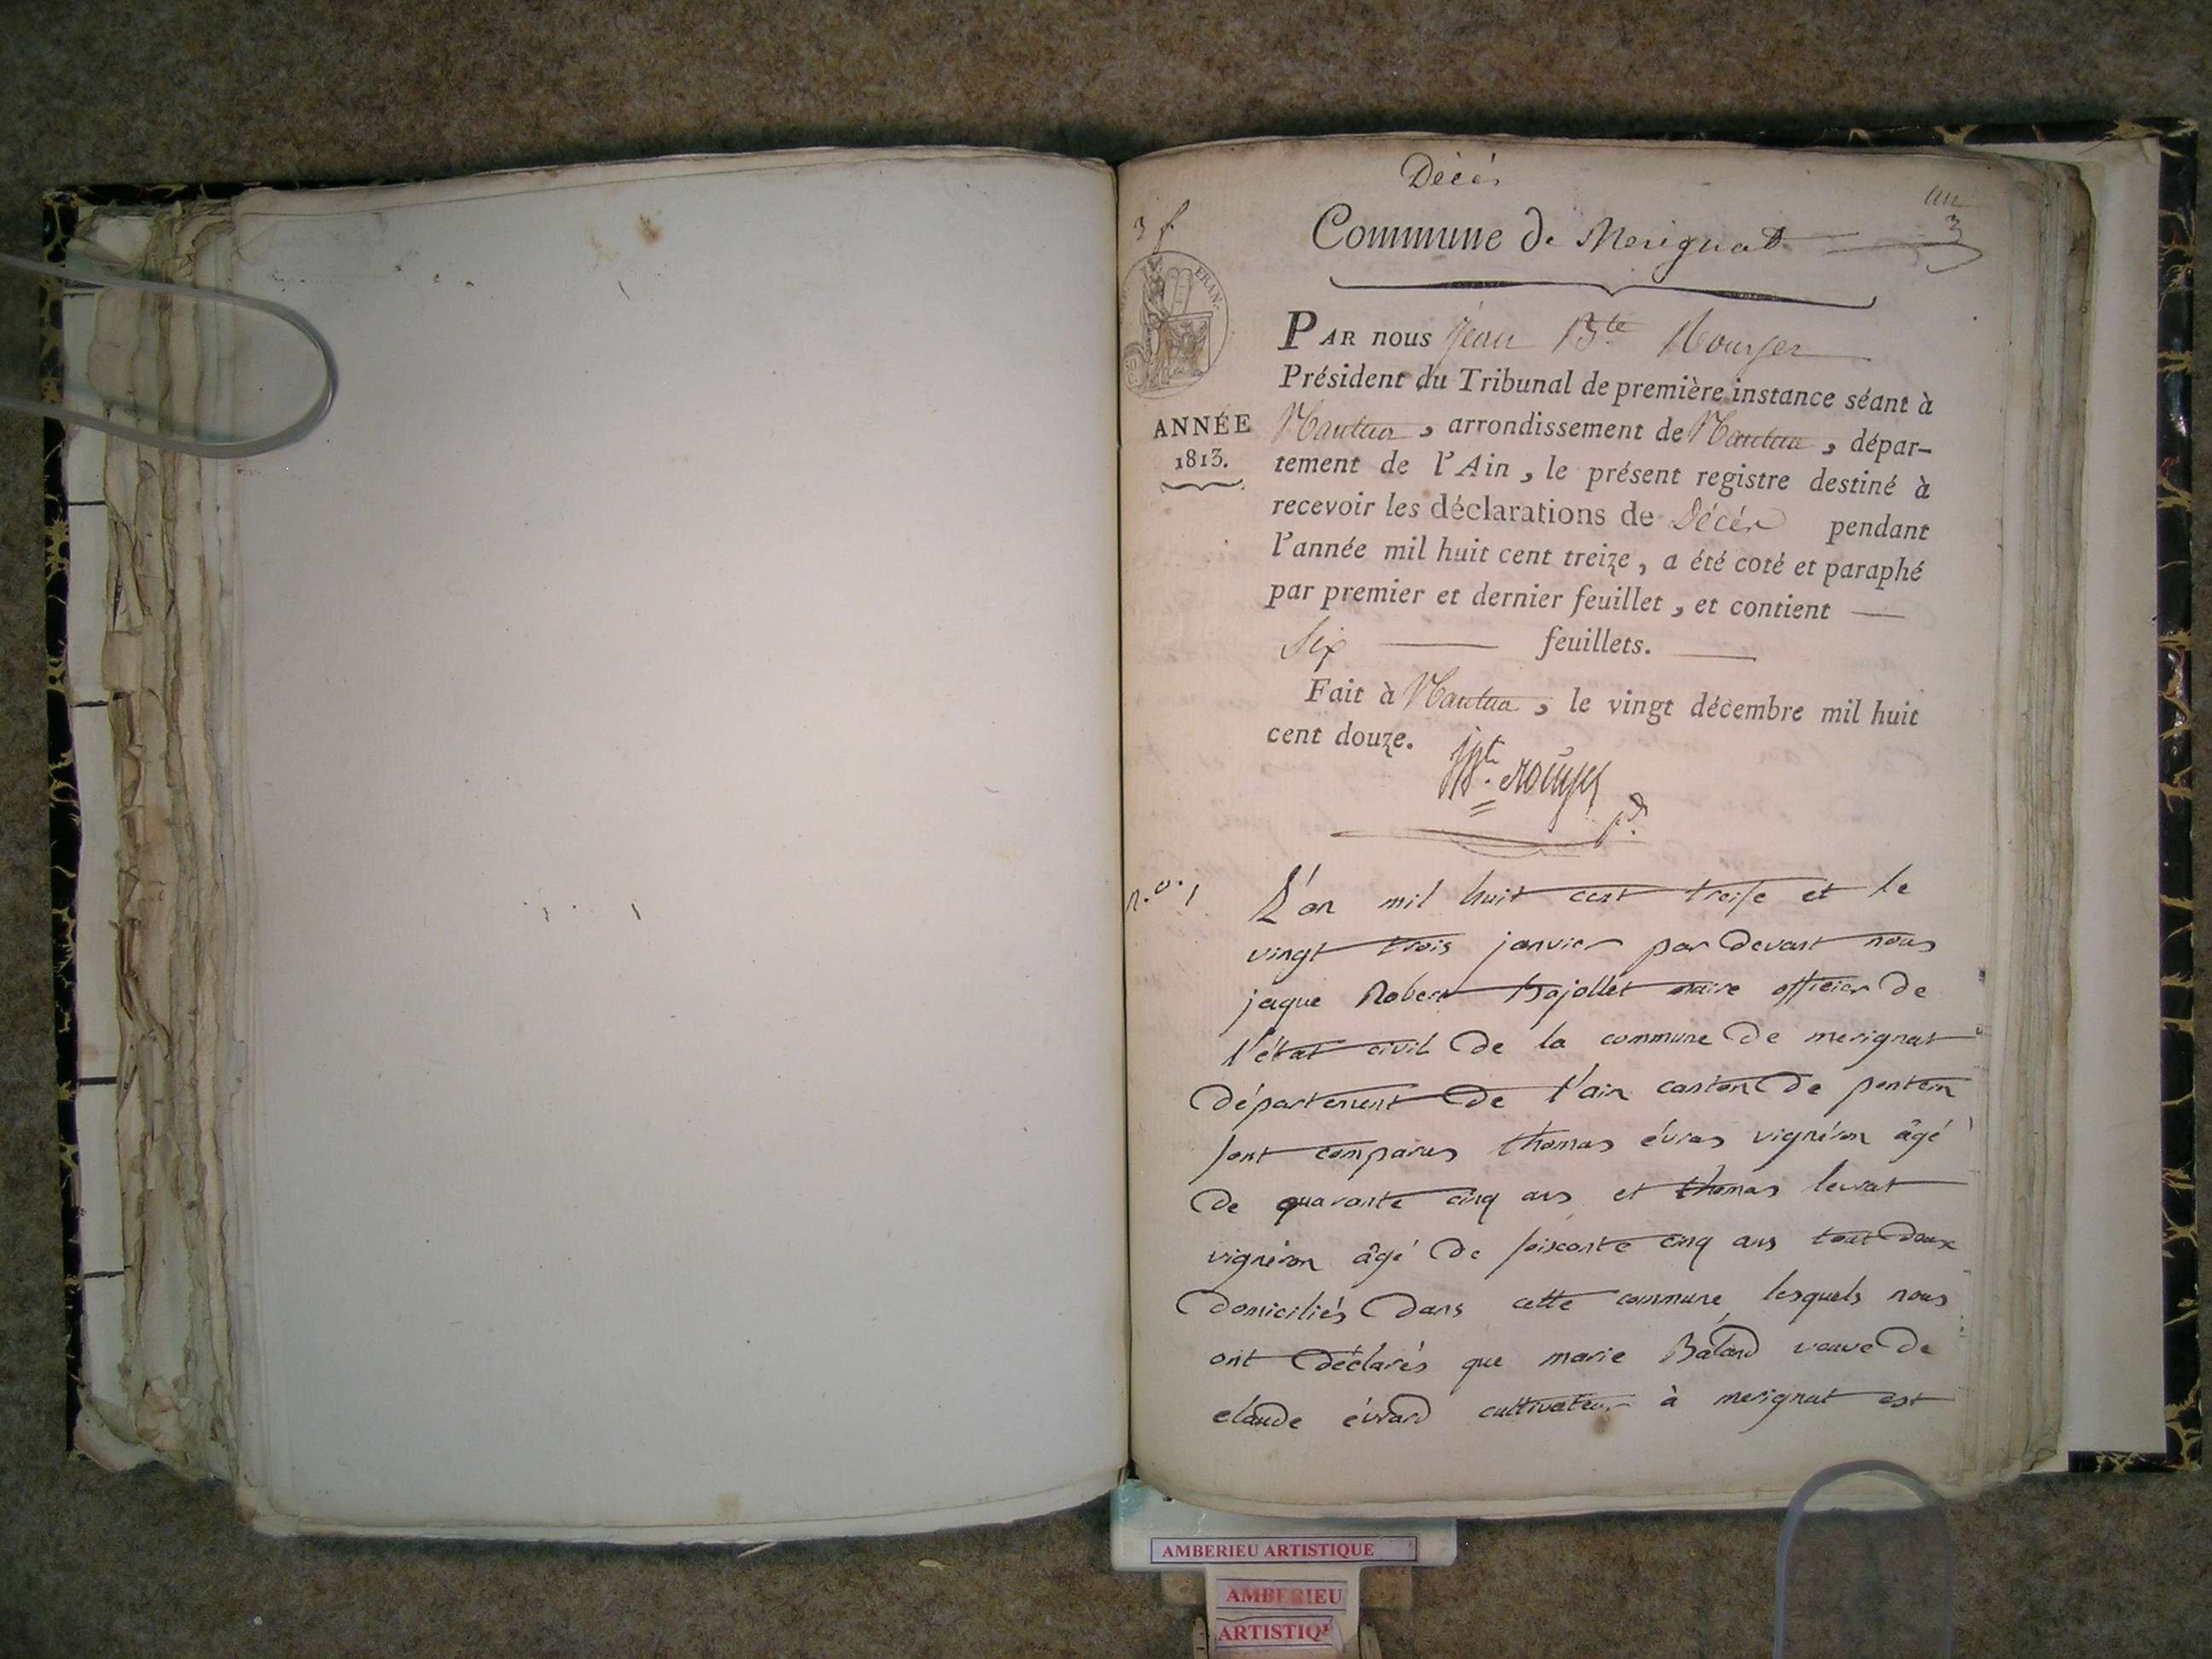 Décès
3 f.
un
3
Commune de Merignat
FRAN.
PAR nous Jean Bte Rouyer
Président du Tribunal de première instance séant à
ANNÉE
1813.
Nantua, arrondissement de Nantua, dépar-
tement de l'Ain, le présent registre destiné à
recevoir les déclarations de Décès pendant
l'année mil huit cent treize, a été coté et paraphé
par premier et dernier feuillet, et contient
Six feuillets.
Fait à Nantua, le vingt décembre mil huit
cent douze.
n.o. 1
L'an mil huit cent treise et le
vingt trois janvier par devant nous
jaque Robert Bojollet maire officier de
l'état civil de la commune de merignat
département de l'ain canton de pontein
sont comparus thomas évras vignéron âgé
de quarante cinq ans et thomas levrat
vignéron âgé de soisconte cinq ans tout deux
domiciliés dans cette commune lesquels nous
ont déclarés que marie Balard veuve de
claude évrard cultivateur à merignat est
AMBERIEU ARTISTIQUE
AMBERIEU
ARTISTIQU